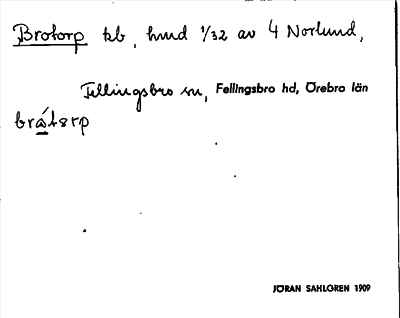 Brotorp lb, hmd 1/32 av 4 Norlund,
Fellingsbro sn, Fellingsbro hd, Örebro län
bråtərp
JÖRAN SAHLGREN 1909